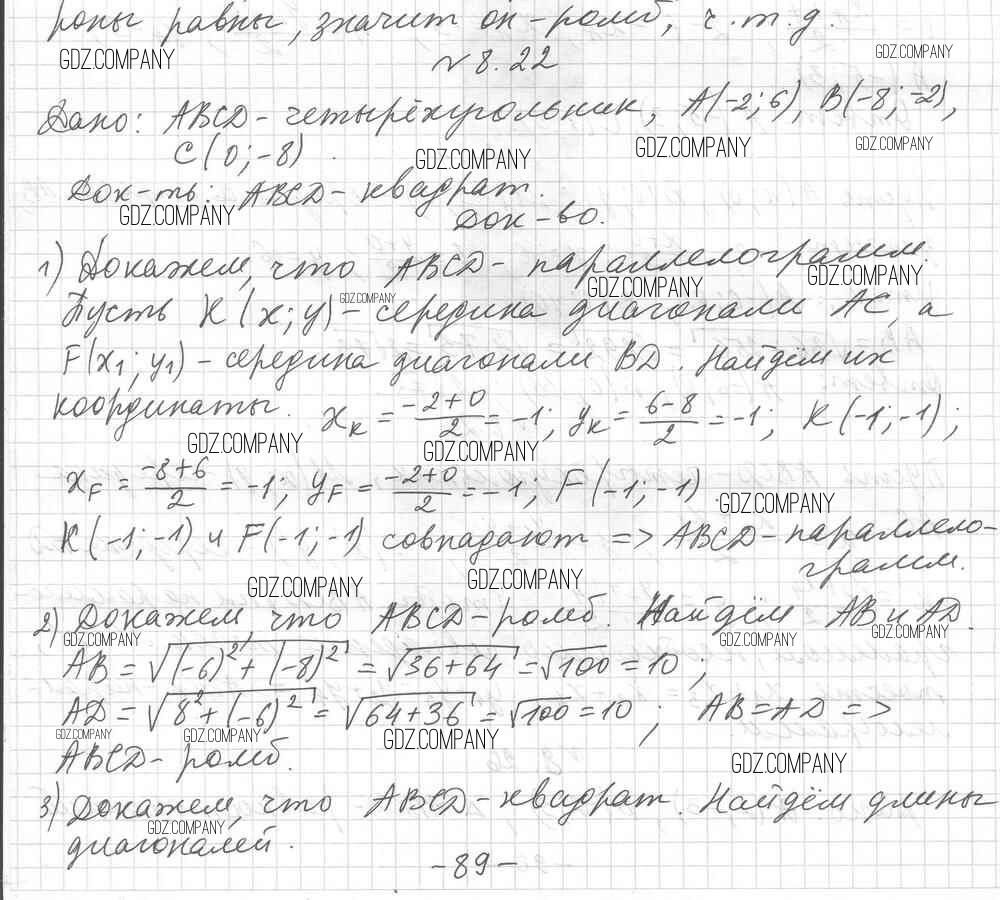 роны равны, значит он - ромб, ч.т.д.
GDZ.COMPANY GDZ.COMPANY
№ 8.22
Дано: ABCD - четырёхугольник, A(-2; 6), B(-8; -2),
C(0; -8).
GDZ.COMPANY GDZ.COMPANY GDZ.COMPANY
Док-ть: ABCD - квадрат.
GDZ.COMPANY
Док-во.
1) Докажем, что ABCD - параллелограмм.
GDZ.COMPANY GDZ.COMPANY
Пусть K(x; y) - середина диагонали AC, а
GDZ.COMPANY
F(x₁; y₁) - середина диагонали BD. Найдём их
координаты. x_K = (-2+0)/2 = -1; y_K = (6-8)/2 = -1; K(-1; -1);
GDZ.COMPANY GDZ.COMPANY
x_F = (-8+6)/2 = -1; y_F = (-2+0)/2 = -1; F(-1; -1).
GDZ.COMPANY
K(-1; -1) и F(-1; -1) совпадают => ABCD - параллело-
грамм.
GDZ.COMPANY GDZ.COMPANY
2) Докажем, что ABCD - ромб. Найдём AB и AD.
GDZ.COMPANY GDZ.COMPANY GDZ.COMPANY
AB = √((-6)² + (-8)²) = √(36+64) = √100 = 10;
AD = √(8² + (-6)²) = √(64+36) = √100 = 10; AB = AD =>
GDZ.COMPANY GDZ.COMPANY GDZ.COMPANY
ABCD - ромб.
GDZ.COMPANY
3) Докажем, что ABCD - квадрат. Найдём длины
GDZ.COMPANY
диагоналей.
- 89 -